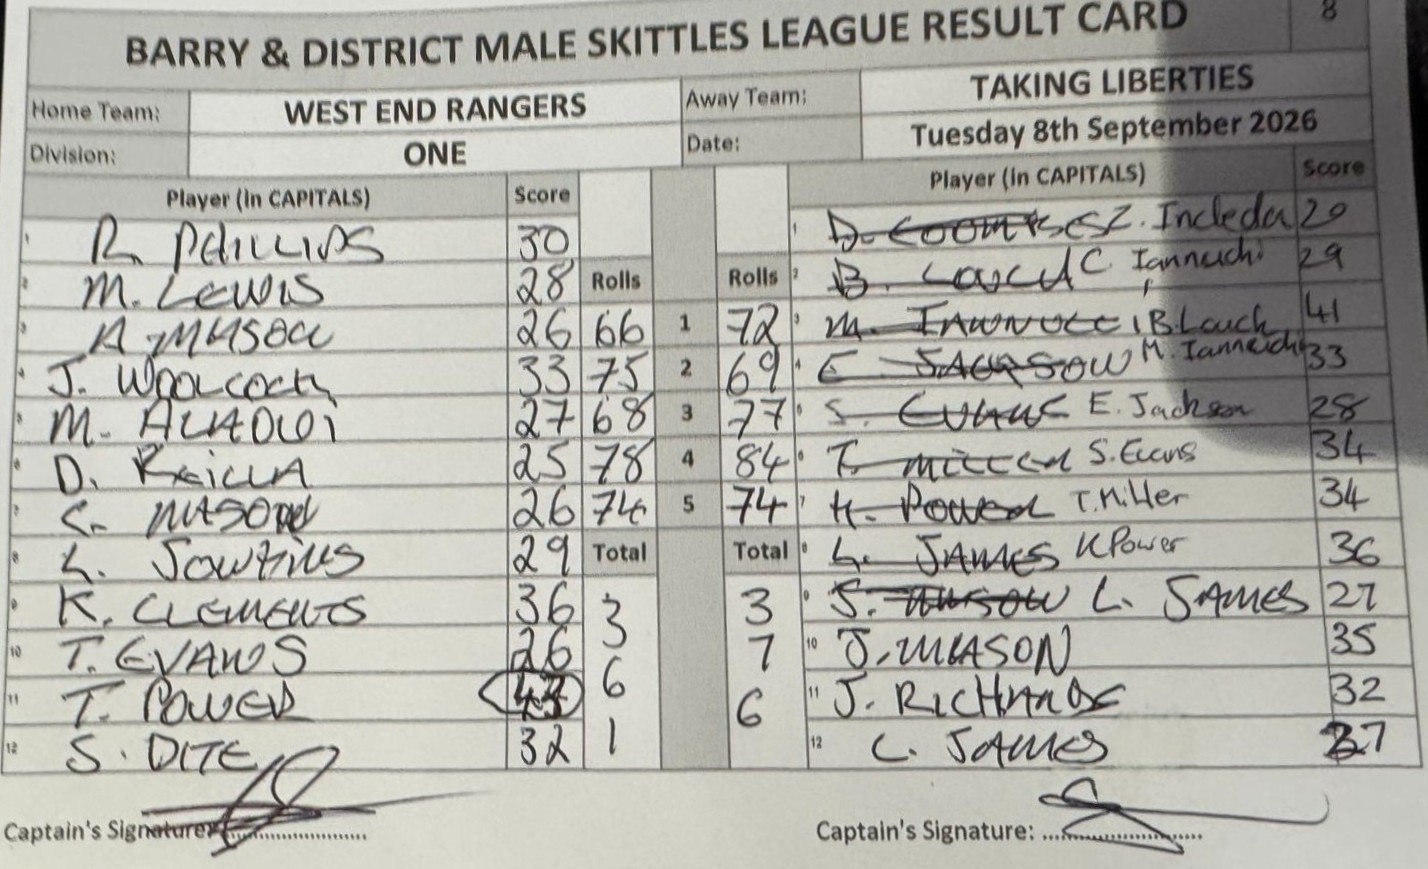 8
BARRY & DISTRICT MALE SKITTLES LEAGUE RESULT CARD
Home Team: WEST END RANGERS Away Team: TAKING LIBERTIES
Division: ONE Date: Tuesday 8th September 2026
Player (in CAPITALS) Score Player (in CAPITALS) Score
1 R. PHILLIPS 30 1 D. COOMBES Z. Incledon 20
2 M. LEWIS 28 Rolls Rolls 2 B. LOUCH C. Iannuchi 29
3 A. MASON 26 66 1 72 3 M. B. Louch 41
4 J. WOOLCOCK 33 75 2 69 4 E JACKSON M. Iannuchi 33
5 M. 27 68 3 77 5 S. EVANS E. Jackson 28
6 D. 25 78 4 84 6 T. MILLER S. Evans 34
7 C. MASON 26 74 5 74 7 K. POWER T. Miller 34
8 L. 29 Total Total 8 L. JAMES K Power 36
9 K. CLEMENTS 36 3 3 9 J. MASON L. JAMES 27
10 T. EVANS 26 3 7 10 J. MASON 35
11 T. POWER 6 6 11 J. RICHARDS 32
12 S. DITE 32 1 12 C. JAMES 37
Captain's Signature: Captain's Signature: